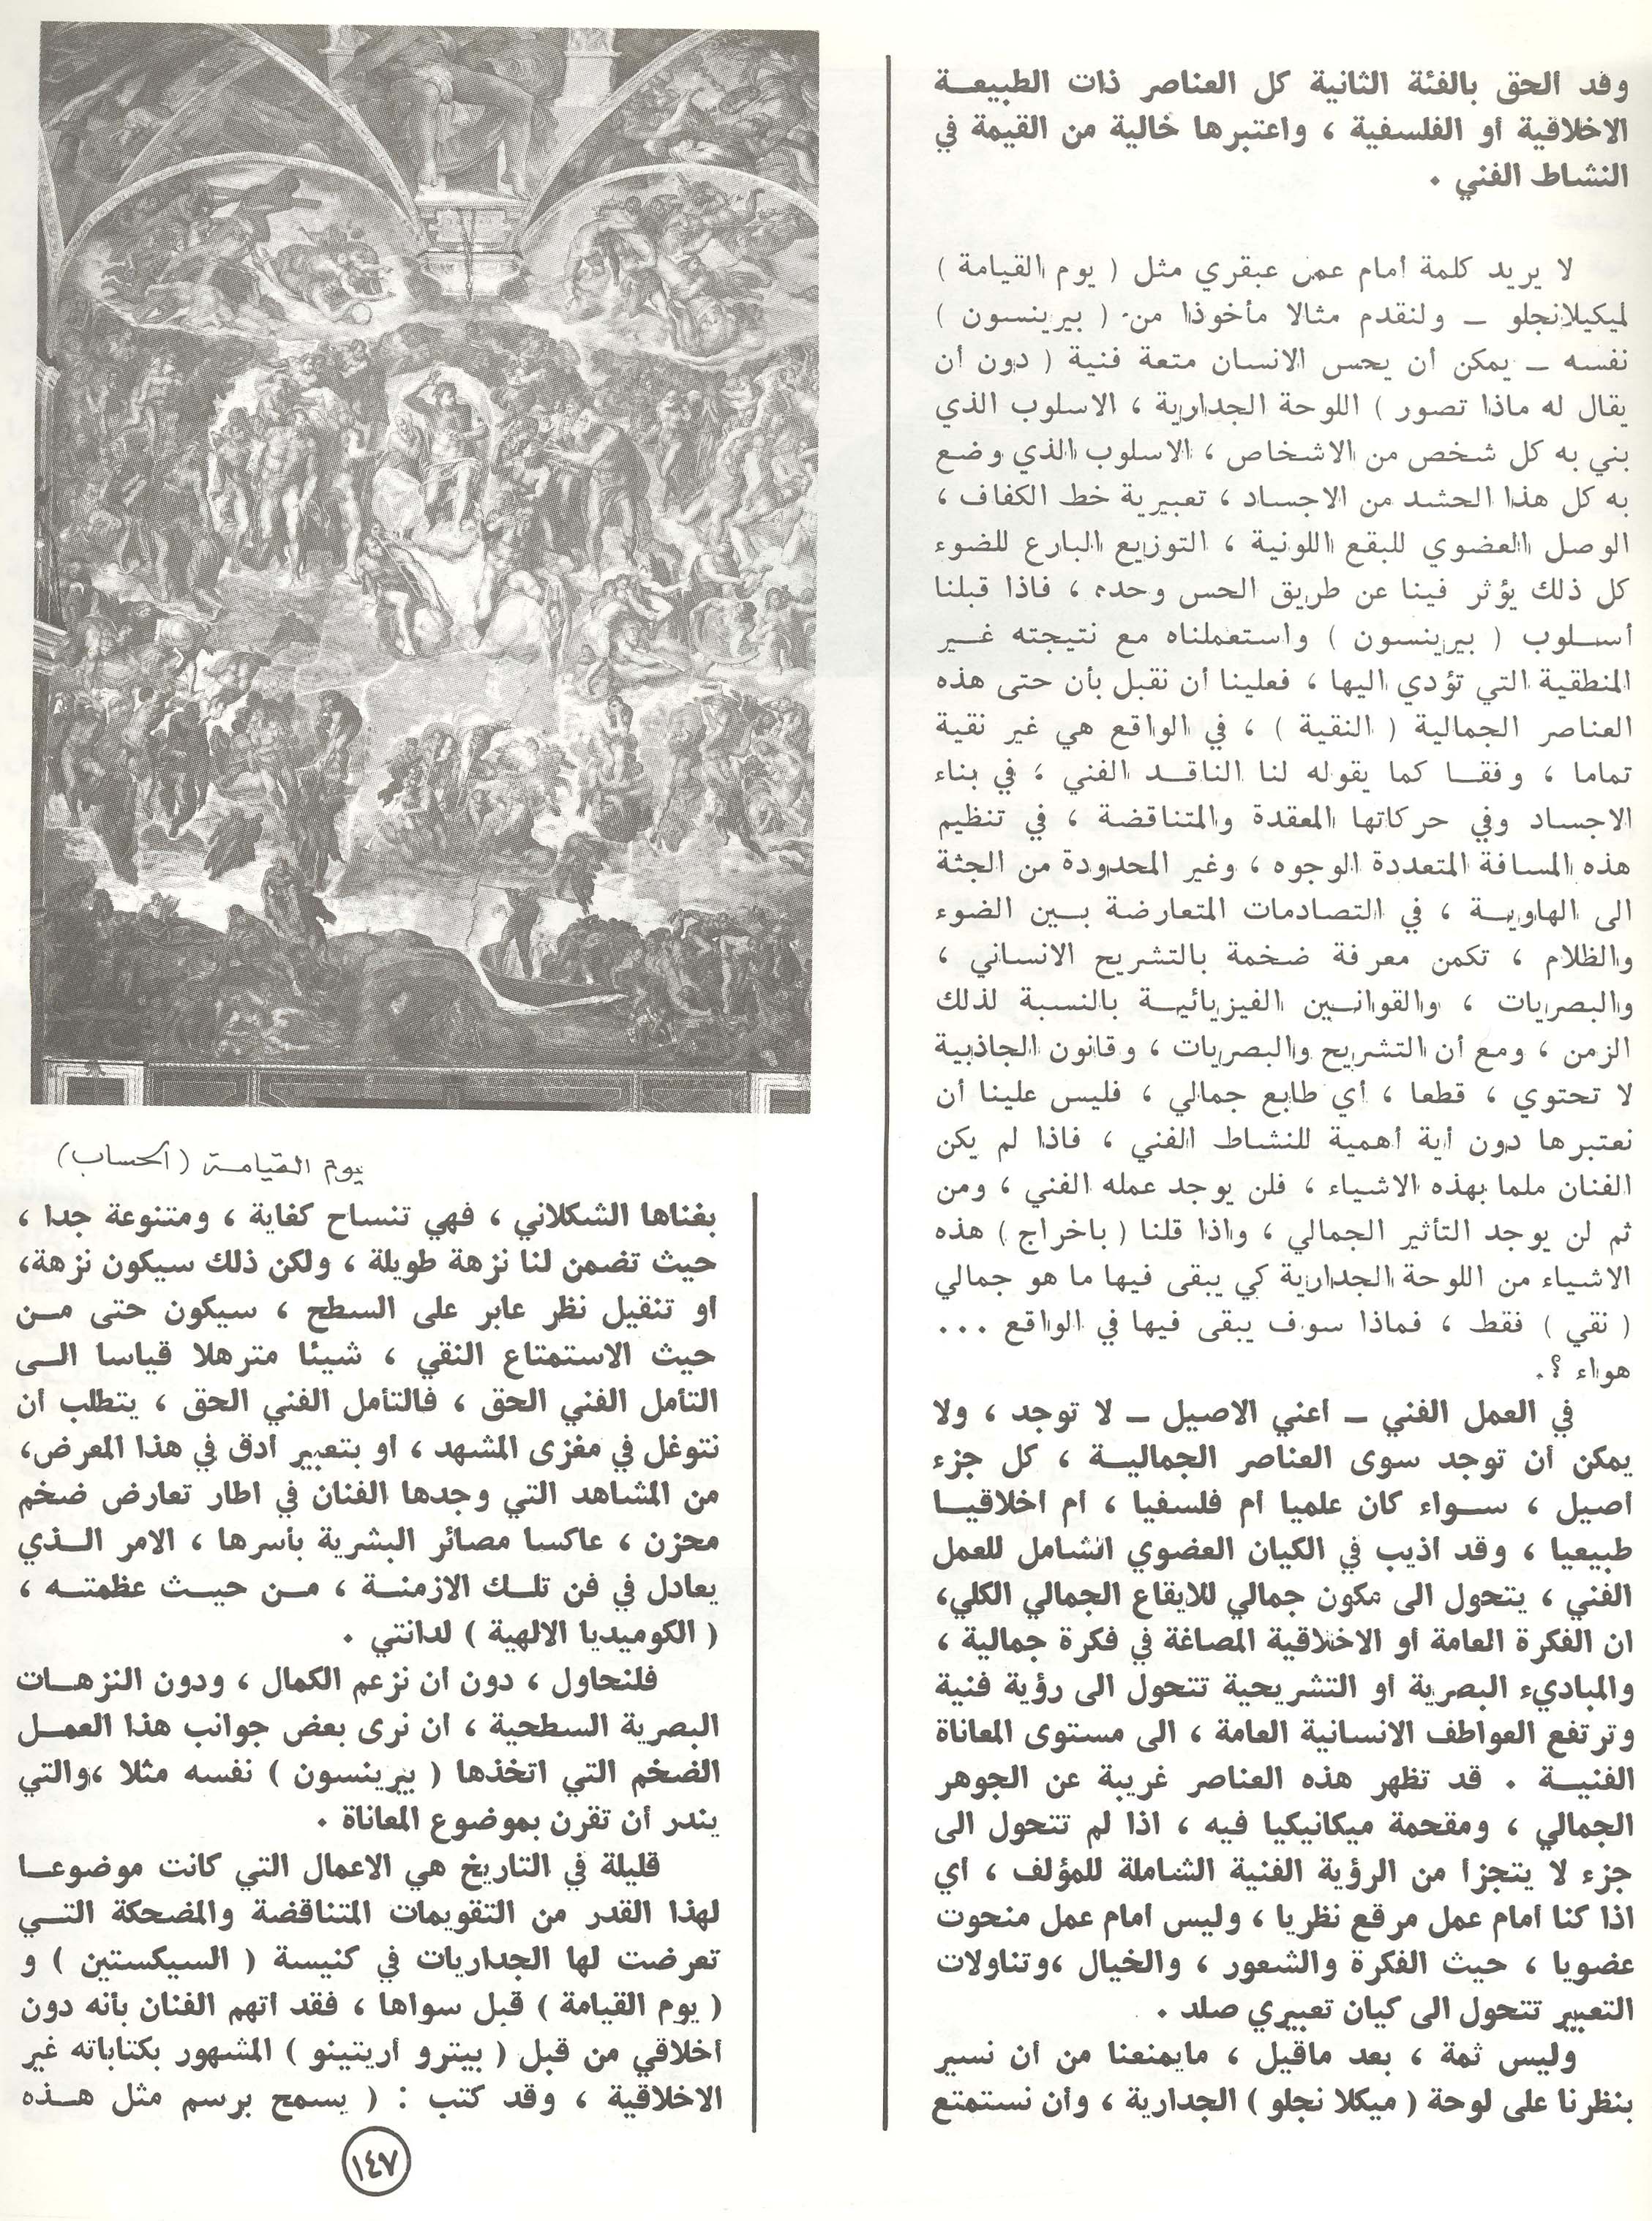 وقد الحق بالفئة الثانية كل العناصر ذات الطبيعة
الاخلاقية أو الفلسفية ، واعتبرها خالية من القيمة في
النشاط الفني .
لا يريد كلمة أمام عمل عبقري مثل ( يوم القيامة )
لميكيلانجلو ـ ولنقدم مثالا مأخوذا من ( بيرينسون )
نفسه ـ يمكن أن يحس الانسان متعة فنية ( دون أن
يقال له ماذا تصور ) اللوحة الجدارية ، الاسلوب الذي
بني به كل شخص من الاشخاص ، الاسلوب الذي وضع
به كل هذا الحشد من الاجساد ، تعبيرية خط الكفاف ،
الوصل العضوي للبقع اللونية ، التوزيع البارع للضوء
كل ذلك يؤثر فينا عن طريق الحس وحده ، فاذا قبلنا
أسلوب ( بيرينسون ) واستعملناه مع نتيجته غير
المنطقية التي تؤدي اليها ، فعلينا أن نقبل بأن حتى هذه
العناصر الجمالية ( النقية ) ، في الواقع هي غير نقية
تماما ، وفقا كما يقوله لنا الناقد الفني ، في بناء
الاجساد وفي حركاتها المعقدة والمتناقضة ، في تنظيم
هذه المسافة المتعددة الوجوه ، وغير المحدودة من الجثة
الى الهاوية ، في التصادمات المتعارضة بين الضوء
والظلام ، تكمن معرفة ضخمة بالتشريح الانساني ،
والبصريات ، والقوانين الفيزيائية بالنسبة لذلك
الزمن ، ومع أن التشريح والبصريات ، وقانون الجاذبية
لا تحتوي ، قطعا ، أي طابع جمالي ، فليس علينا أن
نعتبرها دون أية أهمية للنشاط الفني ، فاذا لم يكن
الفنان ملما بهذه الاشياء ، فلن يوجد عمله الفني ، ومن
ثم لن يوجد التأثير الجمالي ، واذا قلنا ( باخراج ) هذه
الاشياء من اللوحة الجدارية كي يبقى فيها ما هو جمالي
( نقي ) فقط ، فماذا سوف يبقى فيها في الواقع ...
هواء ؟.
في العمل الفني ـ أعني الاصيل ـ لا توجد ، ولا
يمكن أن توجد سوى العناصر الجمالية ، كل جزء
أصيل ، سواء كان علميا أم فلسفيا ، أم أخلاقيا
طبيعيا ، وقد اذيب في الكيان العضوي الشامل للعمل
الفني ، يتحول الى مكون جمالي للايقاع الجمالي الكلي،
ان الفكرة العامة أو الاخلاقية المصاغة في فكرة جمالية ،
والمباديء البصرية أو التشريحية تتحول الى رؤية فنية
وترتفع العواطف الانسانية العامة ، الى مستوى المعاناة
الفنية . قد تظهر هذه العناصر غريبة عن الجوهر
الجمالي ، ومقحمة ميكانيكيا فيه ، اذا لم تتحول الى
جزء لا يتجزأ من الرؤية الفنية الشاملة للمؤلف ، أي
اذا كنا أمام عمل مرقع نظريا ، وليس أمام عمل منحوت
عضويا ، حيث الفكرة والشعور ، والخيال ،وتناولات
التعبير تتحول الى كيان تعبيري صلد .
وليس ثمة ، بعد ماقيل ، مايمنعنا من أن نسير
بنظرنا على لوحة ( ميكلا نجلو ) الجدارية ، وأن نستمتع
يوم القيامة (الحساب)
بغناها الشكلاني ، فهي تنساح كفاية ، ومتنوعة جدا ،
حيث تضمن لنا نزهة طويلة ، ولكن ذلك سيكون نزهة،
أو تنقيل نظر عابر على السطح ، سيكون حتى من
حيث الاستمتاع النقي ، شيئا مترهلا قياسا الى
التأمل الفني الحق ، فالتأمل الفني الحق ، يتطلب أن
نتوغل في مغزى المشهد ، أو بتعبير أدق في هذا المعرض،
من المشاهد التي وجدها الفنان في اطار تعارض ضخم
محزن ، عاكسا مصائر البشرية بأسرها ، الامر الذي
يعادل في فن تلك الازمنة ، من حيث عظمته ،
( الكوميديا الالهية ) لدانتي .
فلنحاول ، دون أن نزعم الكمال ، ودون النزهات
البصرية السطحية ، أن نرى بعض جوانب هذا العمل
الضخم التي اتخذها ( بيرينسون ) نفسه مثلا ،والتي
يندر أن تقرن بموضوع المعاناة .
قليلة في التاريخ هي الاعمال التي كانت موضوعا
لهذا القدر من التقويمات المتناقضة والمضحكة التي
تعرضت لها الجداريات في كنيسة ( السيكستين ) و
( يوم القيامة ) قبل سواها ، فقد اتهم الفنان بأنه دون
أخلاقي من قبل ( بيترو أريتينو ) المشهور بكتاباته غير
الاخلاقية ، وقد كتب : ( يسمح برسم مثل هذه
١٤٧